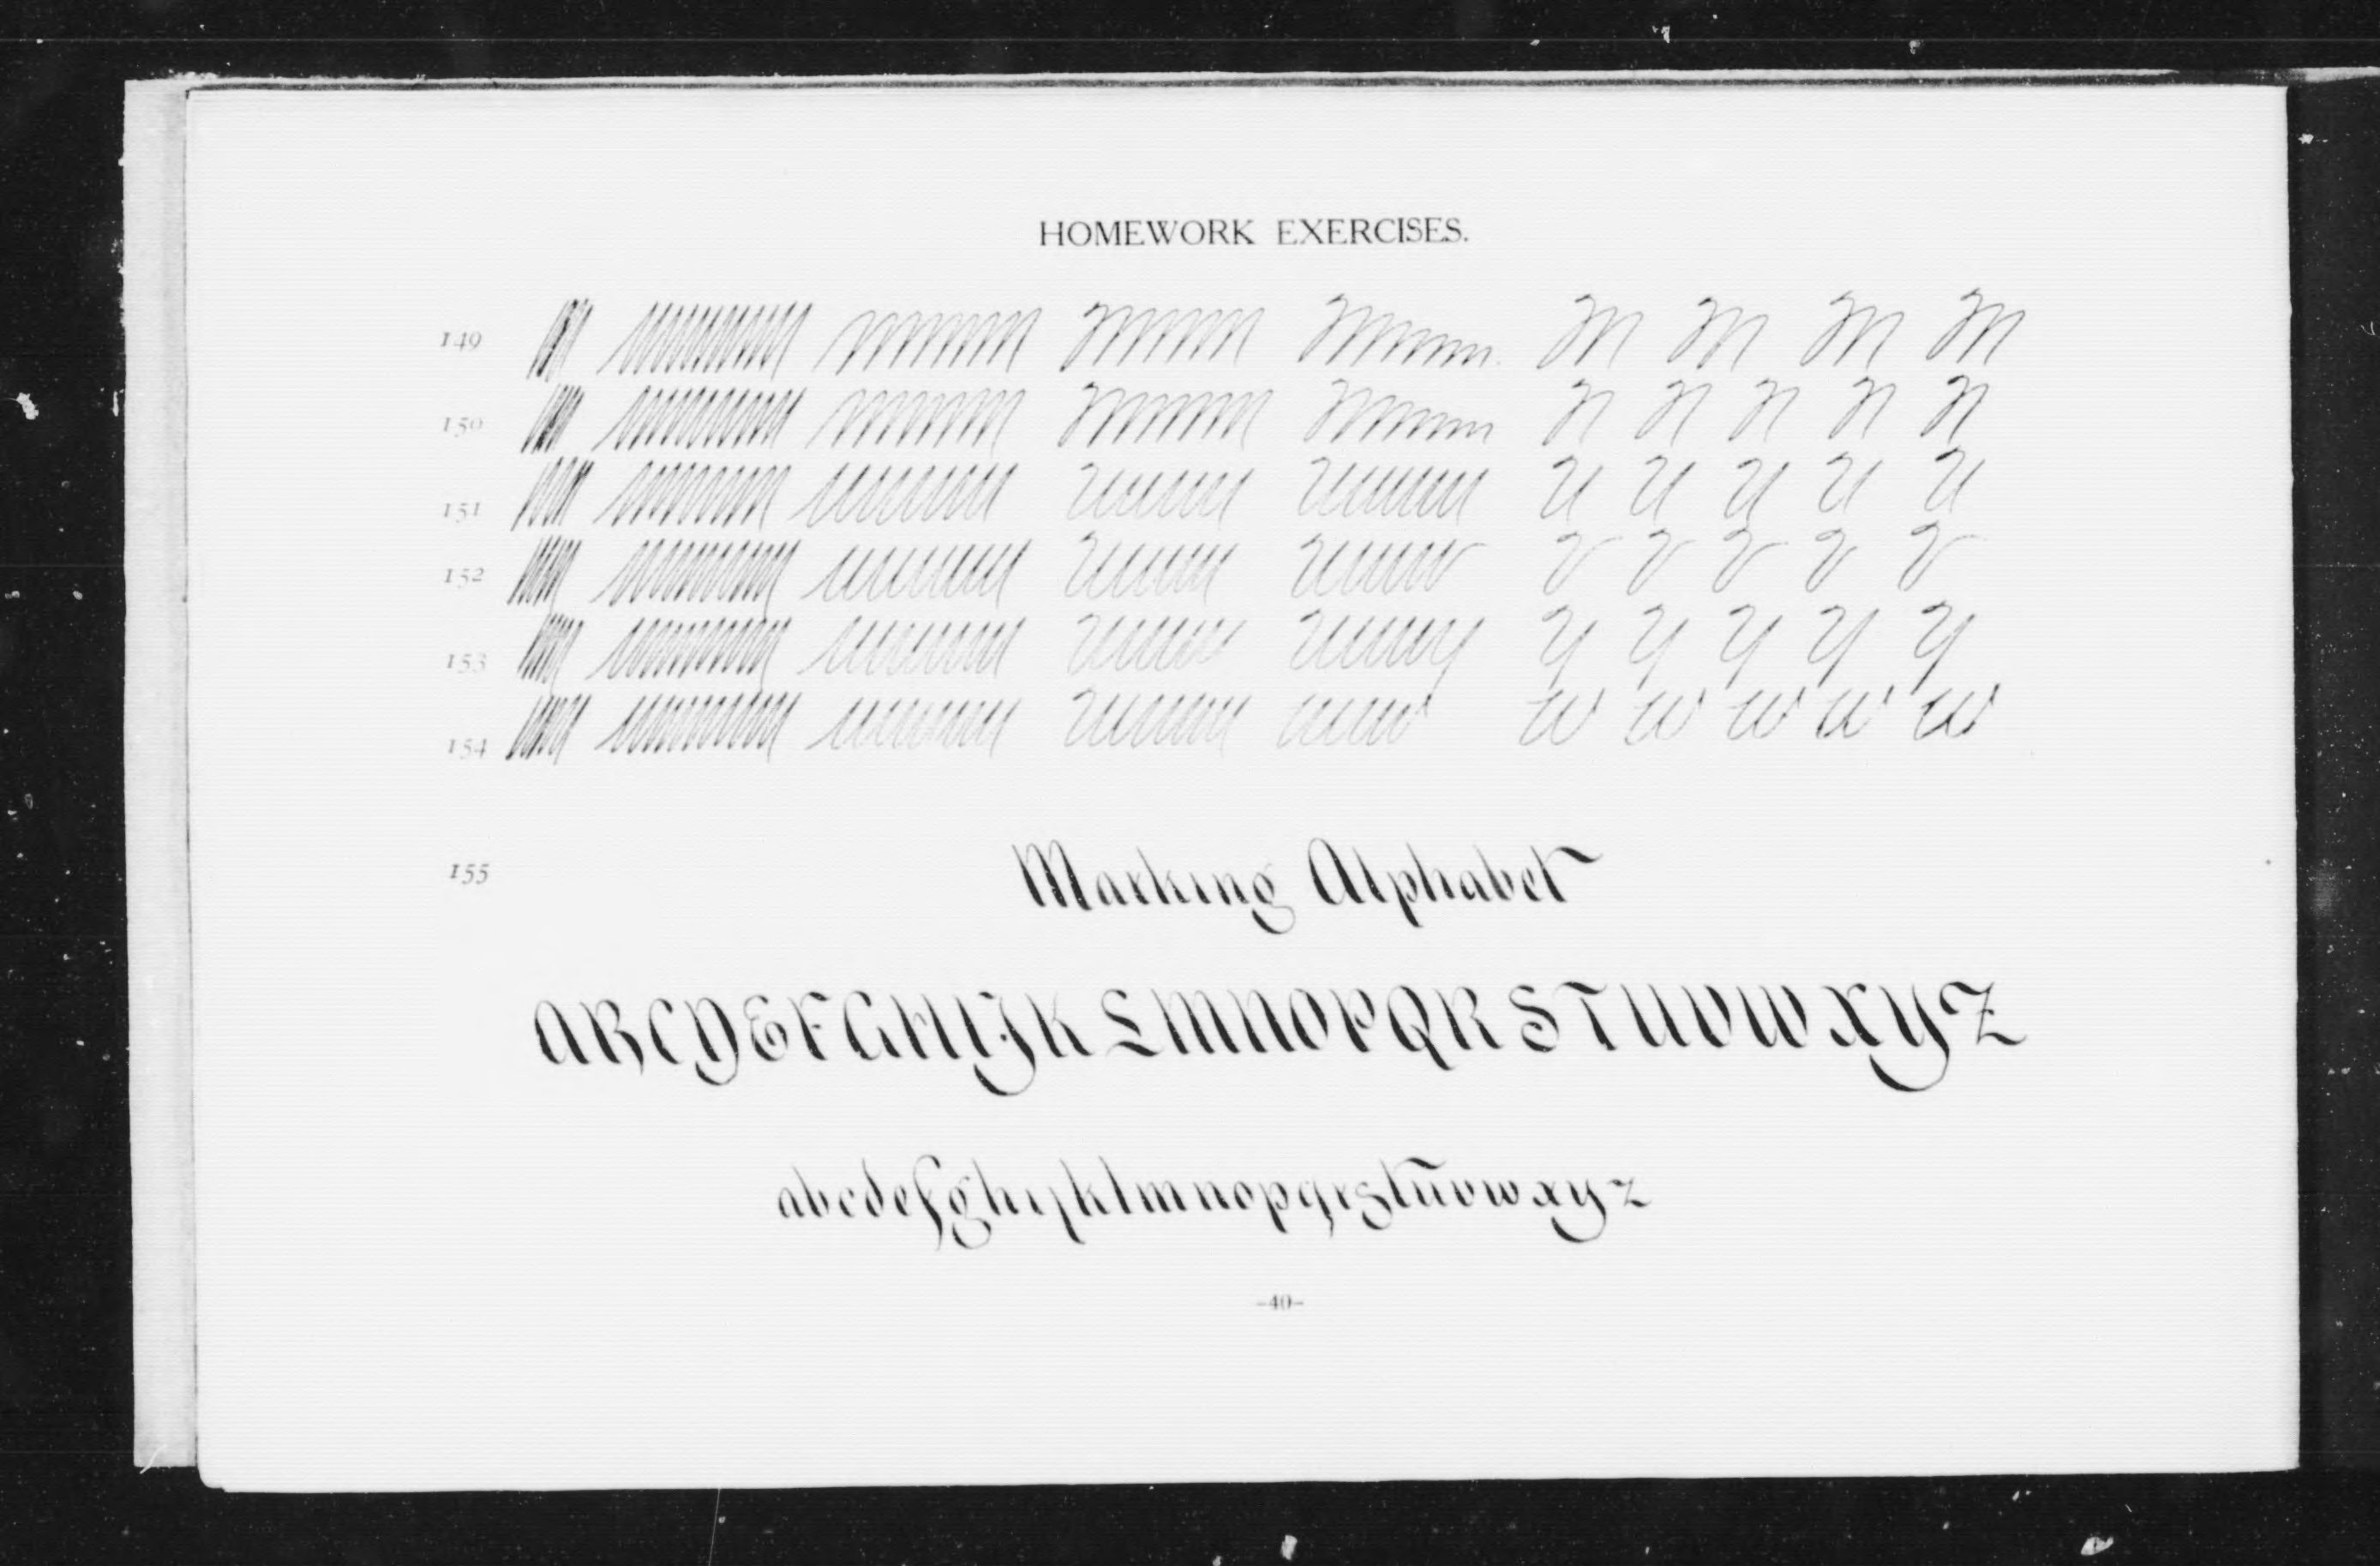 HOMEWORK EXERCISES.
149 M M M M
150 N N N N N
151 U U U U U
152 V V V V V
153 Y Y Y Y Y
154 W W W W W
155 Marking Alphabet
A B C D E F G H I J K L M N O P Q R S T U V W X Y Z
a b c d e f g h i j k l m n o p q r s t u v w x y z
-40-